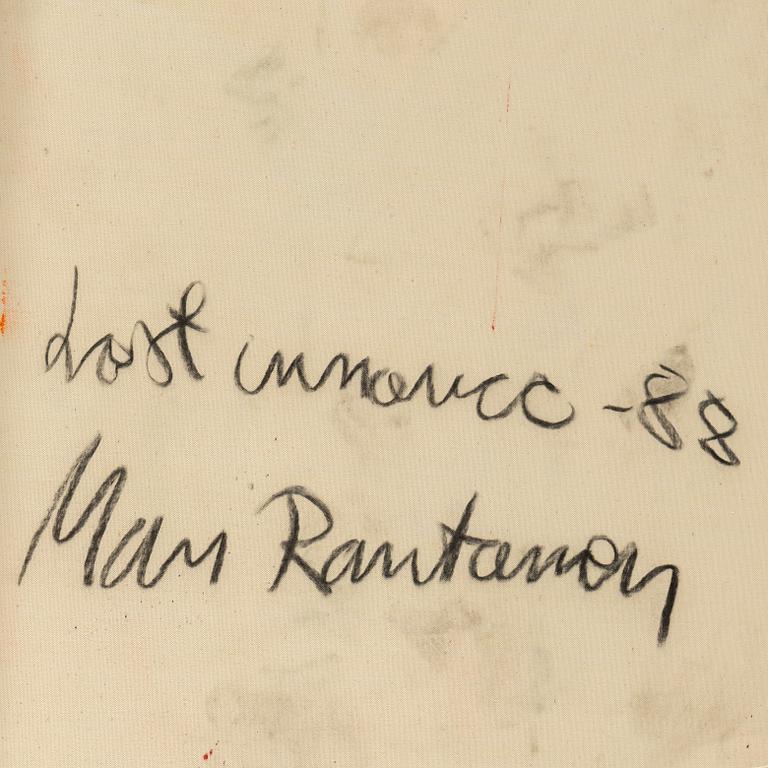 Lost innocence -88
Mari Rantanen